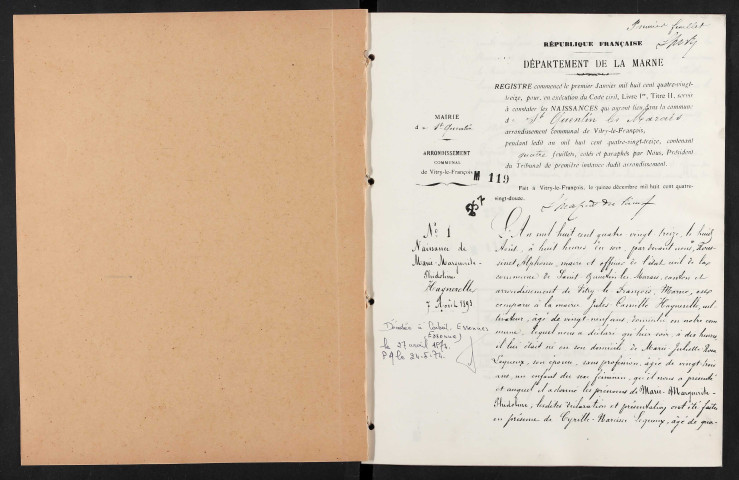 Premier feuillet
RÉPUBLIQUE FRANÇAISE
DÉPARTEMENT DE LA MARNE
REGISTRE commencé le premier Janvier mil huit cent quatre-vingt-
treize, pour, en exécution du Code civil, Livre Ier, Titre II, servir
à constater les NAISSANCES qui auront lieu dans la commune
de St Quentin les Marais
arrondissement communal de Vitry-le-François,
pendant ledit an mil huit cent quatre-vingt-treize, contenant
quatre feuillets, cotés et paraphés par Nous, Président
du Tribunal de première instance dudit arrondissement.
Fait à Vitry-le-François, le quinze décembre mil huit cent quatre-
vingt-douze.
MAIRIE
de St Quentin
ARRONDISSEMENT
COMMUNAL
de Vitry-le-François
M 119
No 1
Naissance de
Marie-Marguerite-
Hagnerelle
7 Août 1893
Décédée à Corbeil-Essonnes
(Essonne)
le 27 avril 1974
L'An mil huit cent quatre vingt treize, le huit
Août, à huit heures du soir, par devant nous,
Alphonse, maire et officier de l'état civil de la
commune de Saint Quentin les Marais, canton et
arrondissement de Vitry le François, Marne, est
comparu à la mairie Jules Camille Hagnerelle, cul-
tivateur, âgé de vingt neuf ans, domicilié en notre com-
mune, lequel nous a déclaré qu'hier soir, à dix heures
il lui était né en son domicile de Marie Juliette
Lequeux, son épouse, sans profession, âgée de vingt trois
ans, un enfant du sexe féminin, qu'il nous a présenté
et auquel il a donné les prénoms de Marie-Marguerite-
lesdites déclaration et présentation ont été faites
en présence de Cyrille-Narcisse Lequeux, âgé de qua-